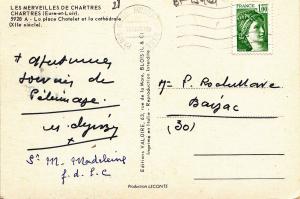 LES MERVEILLES DE CHARTRES
CHARTRES (Eure-et-Loir)
5928 A - La place Chatelet et la cathédrale
(XIIe siècle).
+ Affectueux
souvenir de
Pèlerinage.
+
Sr M. Madeleine
f. d. l. C
Editions VALOIRE, 63, rue de la Mare, BLOIS (L. & C)
Imprimé en Italie - Reproduction interdite
Production LECONTE
FRANCE
1,00
Mme P. Rochallave
Barjac
(30)